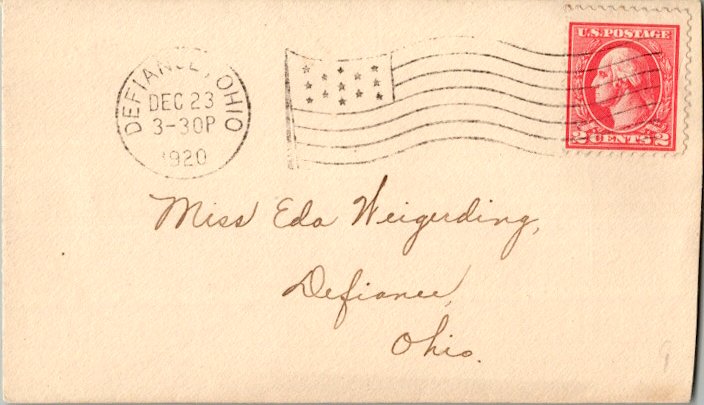 DEFIANCE, OHIO
DEC 23
3-30P
1920
U.S. POSTAGE
2 CENTS 2
Miss Eda Weigerding,
Defiance,
Ohio.